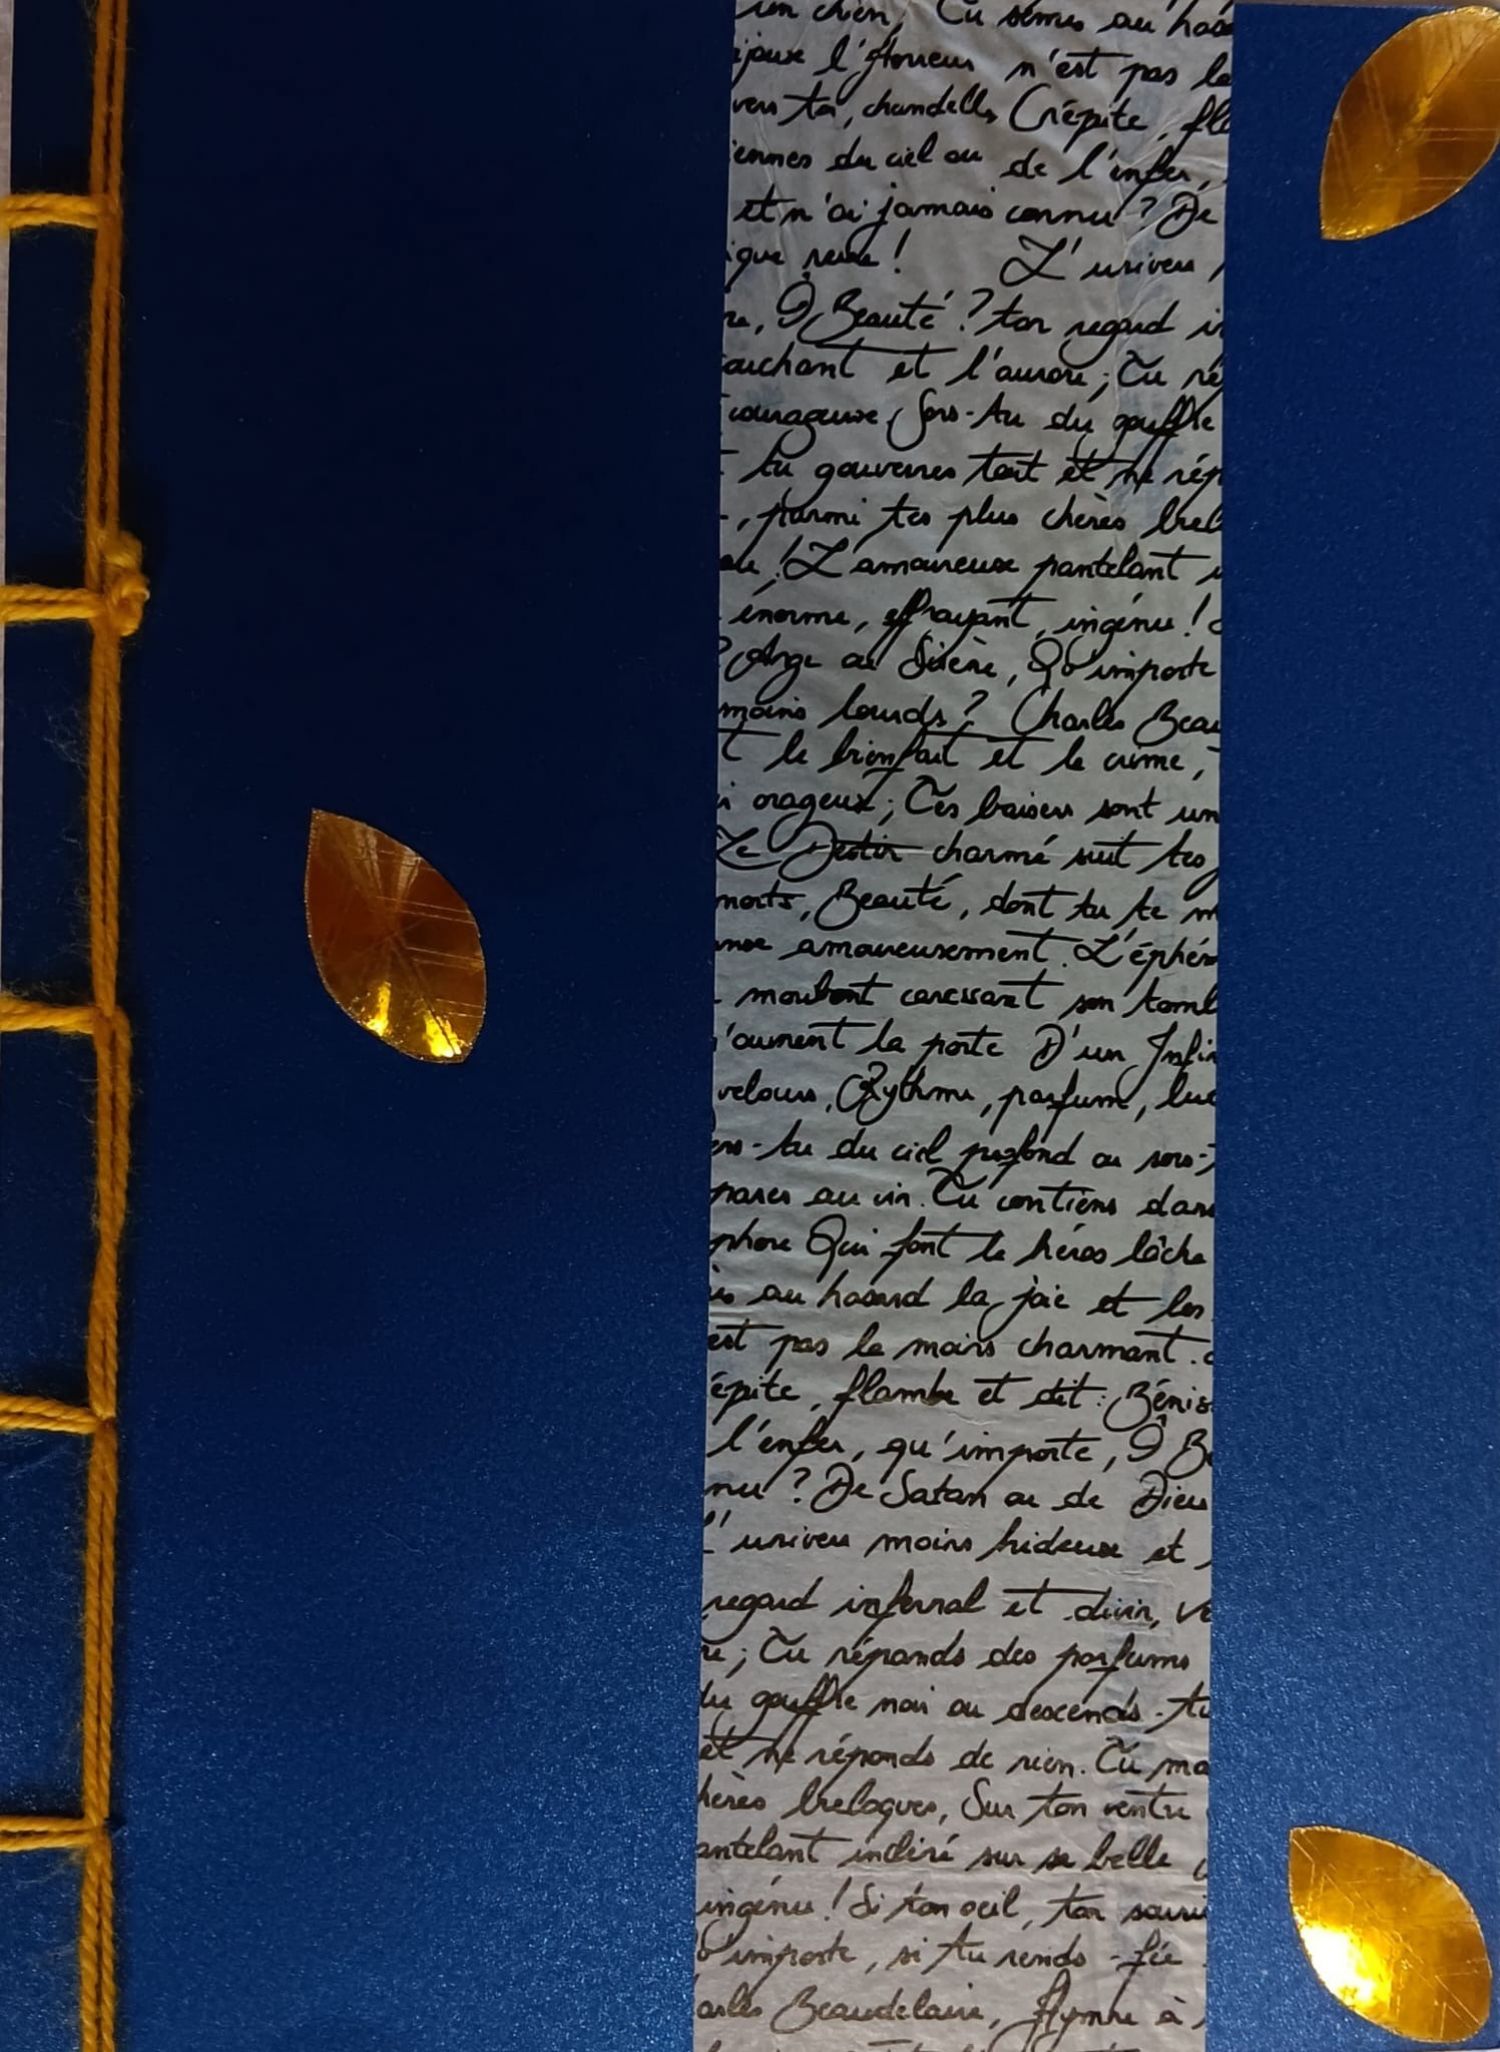 un chien, Tu sèmes au hasa
ijoux l'Horreur n'est pas le
vers toi, chandelle, Crépite, fla
iennes du ciel ou de l'enfer,
et n'ai jamais connu ? De
ique reine ! L'univers
re, Ô Beauté ? ton regard in
couchant et l'aurore ; Tu ré
courageuse, Sors-tu du gouffre
t tu gouvernes tout et ne rép
, parmi tes plus chères brel
ole ! L'amoureux pantelant i
énorme, effrayant, ingénu ! S
? Ange ou Sirène, Qu'importe
moins lourds ? Charles Beau
t le bienfait et le crime,
i orageux ; Tes baisers sont un
Le Destin charmé suit tes
morts, Beauté, dont tu te m
anse amoureusement. L'éphém
moribond caressant son tomb
m'ouvrent la porte D'un Infin
velours, Rythme, parfum, lue
ens-tu du ciel profond ou sors-t
parer au vin. Tu contiens dans
phore Qui font le héros lâche
es au hasard la joie et les
est pas le moins charmant.
épite, flambe et dit : Béniss
l'enfer, qu'importe, Ô Be
nnu ? De Satan ou de Dieu
L'univers moins hideux et
regard infernal et divin, Ve
re ; Tu répands des parfums
du gouffre noir ou descends-tu
et ne réponds de rien. Tu ma
hères breloques, Sur ton ventre
antelant incliné sur sa belle
ingénu ! Si ton oeil, ton souri
Qu'importe, si tu rends - fée
arles Beaudelaire, Hymne à